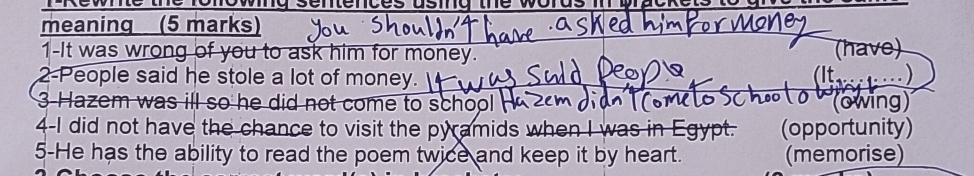 1-Rewrite the following sentences using the words in brackets to give the same
meaning (5 marks) you shouldn't have asked him for money
1-It was wrong of you to ask him for money. (have)
2-People said he stole a lot of money. It was said (It..........)
3-Hazem was ill so he did not come to school Hazem didn't come to school (owing)
4-I did not have the chance to visit the pyramids when I was in Egypt. (opportunity)
5-He has the ability to read the poem twice and keep it by heart. (memorise)